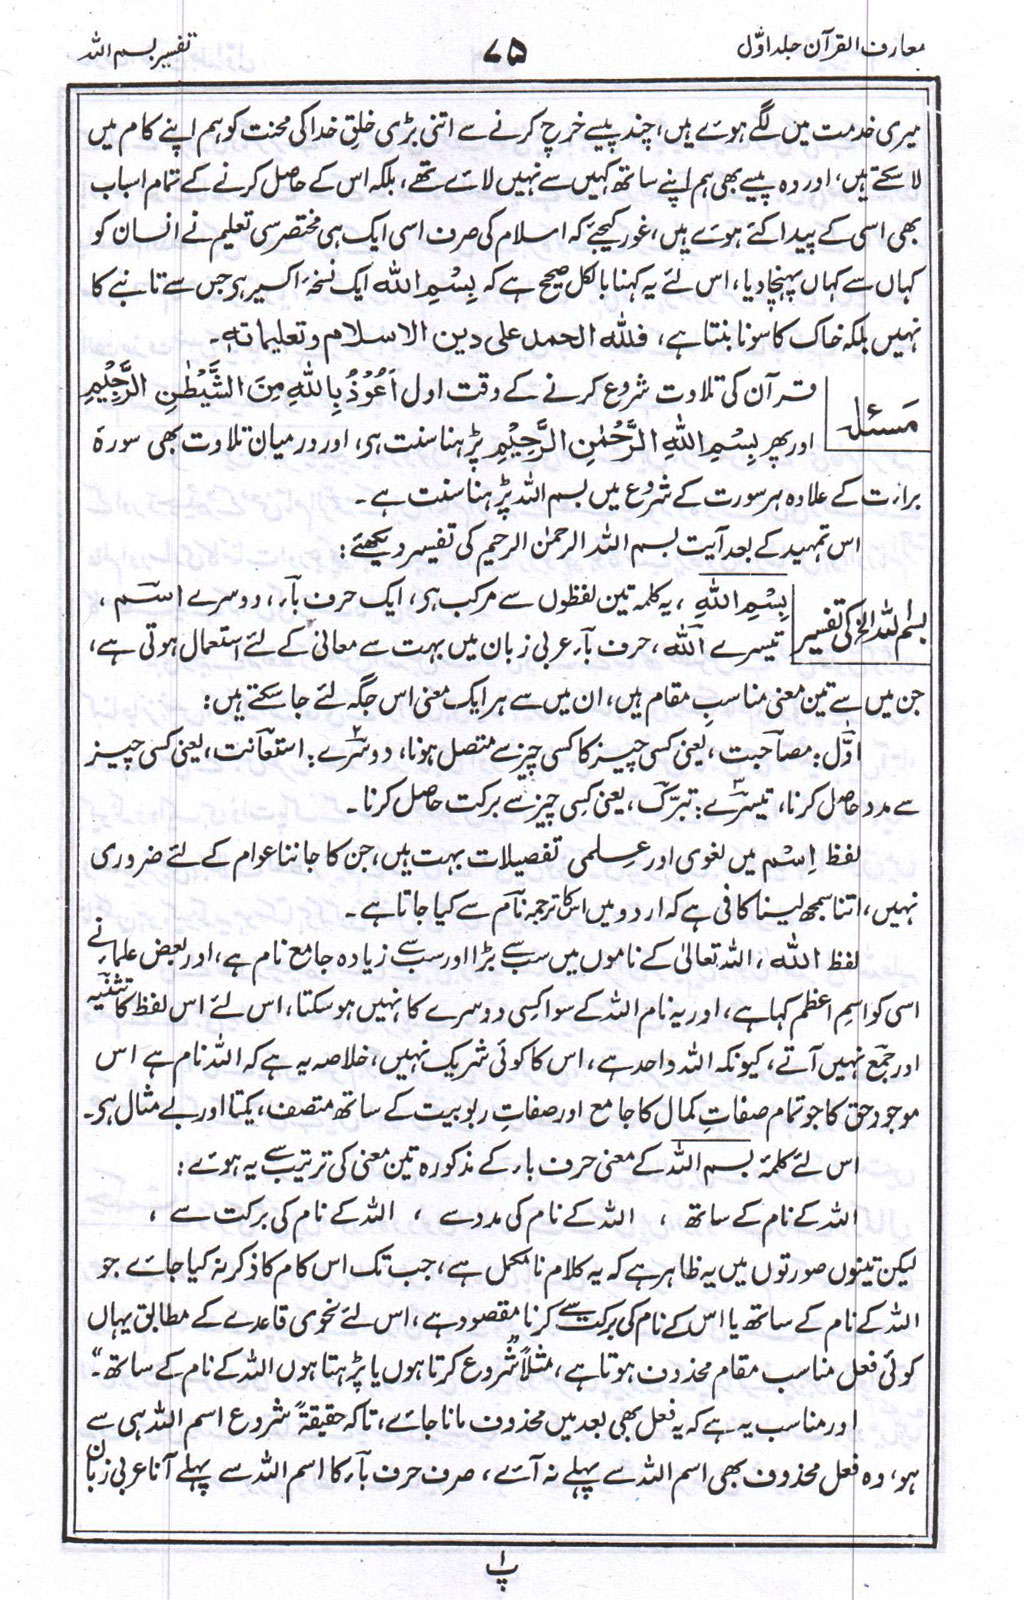 معارف القرآن جلد اوّل
۷۵
تفسیر بسم اللہ
میری خدمت میں لگے ہوئے ہیں، چند پیسے خرچ کرنے سے اتنی بڑی خلقِ خدا کی محنت کو ہم اپنے کام میں
لا سکتے ہیں، اور وہ پیسے بھی ہم اپنے ساتھ کہیں سے نہیں لائے تھے، بلکہ اس کے حاصل کرنے کے تمام اسباب
بھی اسی کے پیدا کئے ہوئے ہیں، غور کیجئے کہ اسلام کی صرف اسی ایک ہی مختصر سی تعلیم نے انسان کو
کہاں سے کہاں پہنچا دیا، اس لئے یہ کہنا بالکل صحیح ہے کہ بِسْمِ اللہ ایک نسخۂ اکسیر ہی جس سے تانبے کا
نہیں بلکہ خاک کا سونا بنتا ہے، فللہ الحمد علی دین الاسلام وتعلیماتہ۔
مَسئلہ
قرآن کی تلاوت شروع کرنے کے وقت اول اَعُوْذُ بِاللّٰہِ مِنَ الشَّیْطٰنِ الرَّجِیْمِ
اور پھر بِسْمِ اللّٰہِ الرَّحْمٰنِ الرَّحِیْمِ پڑھنا سنت ہی، اور درمیان تلاوت بھی سورۂ
براءت کے علاوہ ہر سورت کے شروع میں بسم اللہ پڑھنا سنت ہے۔
اس تمہید کے بعد آیت بسم اللہ الرحمٰن الرحیم کی تفسیر دیکھئے:
بسم اللہ الخ کی تفسیر
بِسْمِ اللّٰہِ، یہ کلمہ تین لفظوں سے مرکب ہی، ایک حرف بآء، دوسرے اسم،
تیسرے اللّٰہ، حرف بآء عربی زبان میں بہت سے معانی کے لئے استعمال ہوتی ہے،
جن میں سے تین معنی مناسبِ مقام ہیں، ان میں سے ہر ایک معنی اس جگہ لئے جا سکتے ہیں:
اوّل: مصاحبت، یعنی کسی چیز کا کسی چیز سے متصل ہونا، دوسرے: استعانت، یعنی کسی چیز
سے مدد حاصل کرنا، تیسرے: تبرّک، یعنی کسی چیز سے برکت حاصل کرنا۔
لفظ اِسْم میں لغوی اور علمی تفصیلات بہت ہیں، جن کا جاننا عوام کے لئے ضروری
نہیں، اتنا سمجھ لینا کافی ہے کہ اردو میں اس کا ترجمہ نام سے کیا جاتا ہے۔
لفظ اللہ، اللہ تعالیٰ کے ناموں میں سب سے بڑا اور سب سے زیادہ جامع نام ہے، اور بعض علماء نے
اسی کو اسمِ اعظم کہا ہے، اور یہ نام اللہ کے سوا کسی دوسرے کا نہیں ہو سکتا، اس لئے اس لفظ کا تثنیہ
اور جمع نہیں آتے، کیونکہ اللہ واحد ہے، اس کا کوئی شریک نہیں، خلاصہ یہ ہے کہ اللہ نام ہے اس
موجودِ حق کا جو تمام صفاتِ کمال کا جامع اور صفاتِ ربوبیت کے ساتھ متصف، یکتا اور بے مثال ہی۔
اس لئے کلمۂ بسم اللہ کے معنی حرف باء کے مذکورہ تین معنی کی ترتیب سے یہ ہوئے:
اللہ کے نام کے ساتھ ، اللہ کے نام کی مدد سے ، اللہ کے نام کی برکت سے ،
لیکن تینوں صورتوں میں یہ ظاہر ہے کہ یہ کلام نامکمل ہے، جب تک اس کام کا ذکر نہ کیا جائے جو
اللہ کے نام کے ساتھ یا اس کے نام کی برکت سے کرنا مقصود ہے، اس لئے نحوی قاعدے کے مطابق یہاں
کوئی فعل مناسب مقام محذوف ہوتا ہے، مثلاً "شروع کرتا ہوں یا پڑھتا ہوں اللہ کے نام کے ساتھ"۔
اور مناسب یہ ہے کہ یہ فعل بھی بعد میں محذوف مانا جائے، تاکہ حقیقۃً شروع اسم اللہ ہی سے
ہو، وہ فعل محذوف بھی اسم اللہ سے پہلے نہ آئے، صرف حرف بآء کا اسم اللہ سے پہلے آنا عربی زبان
پ۱